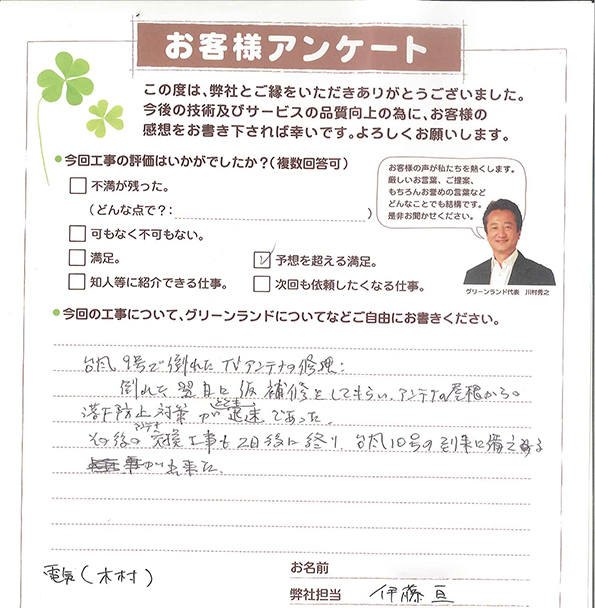 お客様アンケート
この度は、弊社とご縁をいただきありがとうございました。
今後の技術及びサービスの品質向上の為に、お客様の
感想をお書き下されば幸いです。よろしくお願いします。
●今回工事の評価はいかがでしたか?(複数回答可)
不満が残った。
(どんな点で?: )
可もなく不可もない。
満足。
予想を超える満足。
知人等に紹介できる仕事。
次回も依頼したくなる仕事。
お客様の声が私たちを熱くします。
厳しいお言葉、ご提案、
もちろんお誉めの言葉など
どんなことでも結構です。
是非お聞かせください。
グリーンランド代表 川村秀之
●今回の工事について、グリーンランドについてなどご自由にお書きください。
台風9号で倒れたTVアンテナの修理:
倒れた翌日に仮補修をしてもらい、アンテナの屋根からの
落下防止対策が とても 迅速であった。
その後の アンテナ 交換工事も2日後に終り、台風10号の到来に備える
事が出来た。
電気(木村)
お名前
弊社担当 伊藤亘